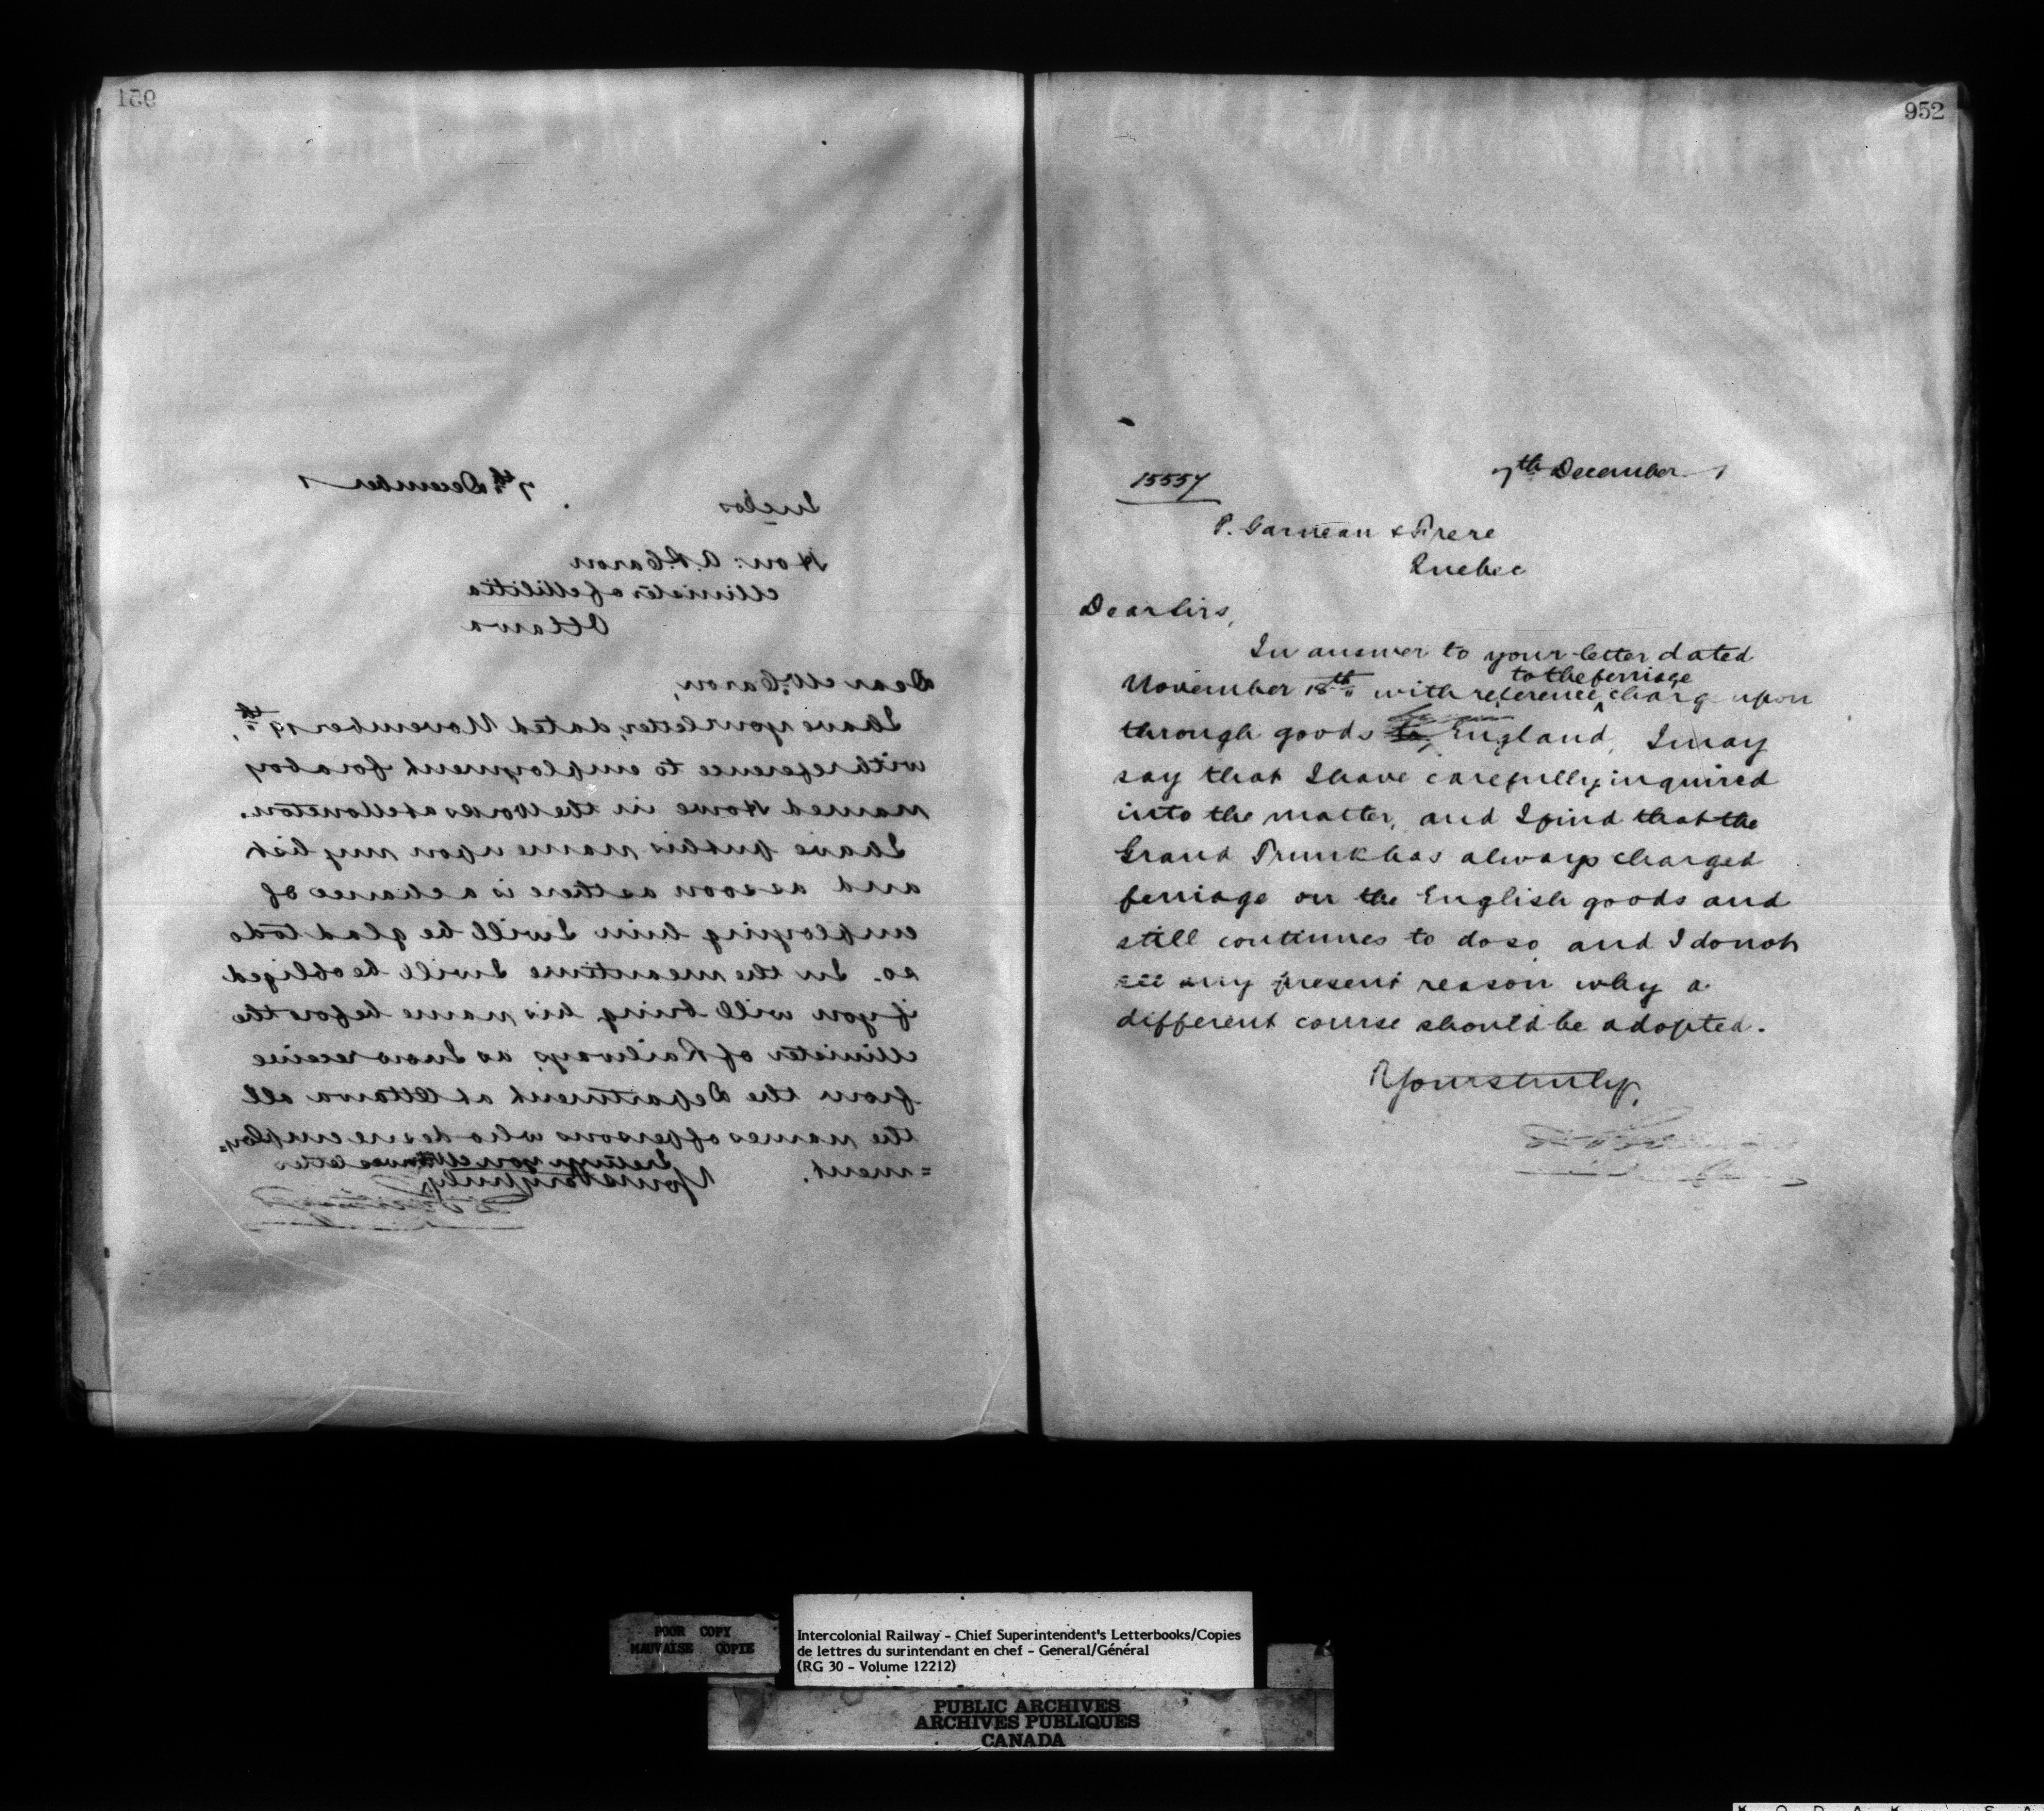 951
7th December 1
Inclos
Hon: A.P. Caron
Minister of Militia
Ottawa
Dear Mr. Caron,
I have your letter, dated November 19th,
with reference to employment for a boy
named Howe in the Works at Moncton.
I have put his name upon my list
and as soon as there is a chance of
employing him I will be glad to do
so. In the meantime I will be obliged
if you will bring his name before the
Minister of Railways, as I now receive
from the Department at Ottawa all
the names of persons who desire employ=
=ment.
I return you letter
Yours very truly,
952
15557
7th December 1
P. Garneau & Frere
Quebec
Dear Sirs,
In answer to your letter dated
to the ferriage
November 18th, with reference charg upon
through goods England, I may
say that I have carefully inquired
into the matter, and I find that the
Grand Trunk has always charged
ferriage on the English goods and
still continues to do so, and I do not
see any present reason why a
different course should be adopted.
Yours truly,
POOR COPY
MAUVAISE COPIE
Intercolonial Railway - Chief Superintendent's Letterbooks/Copies
de lettres du surintendant en chef - General/Général
(RG 30 - Volume 12212)
PUBLIC ARCHIVES
ARCHIVES PUBLIQUES
CANADA